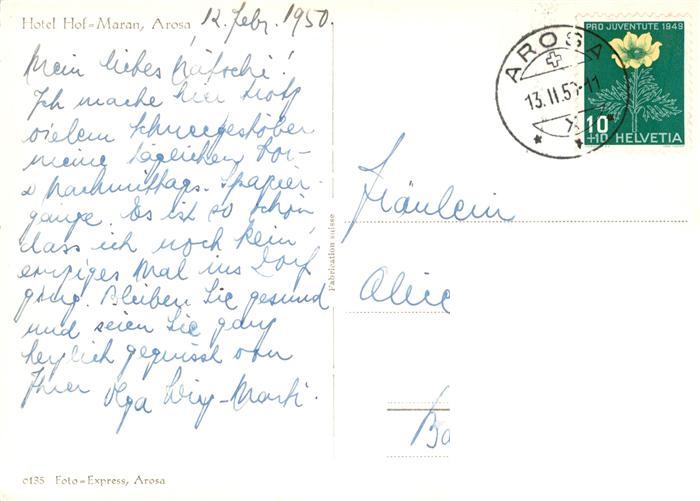 Hotel Hof=Maran, Arosa 12. Febr. 1950.
Mein liebes
Ich mache hier trotz
vielem Schneegestöber
meine täglichen Vor-
& Nachmittags-Spazier-
gänge. Es ist so schön
dass ich noch kein
einziges Mal ins Dorf
ging. Bleiben Sie gesund
und seien Sie ganz
herzlich gegrüsst von
Ihrer Olga
0135 Foto=Express, Arosa
Fabrication suisse
AROSA
13.II.50-11
PRO JUVENTUTE 1949
10
+10 HELVETIA
Fräulein
Alice
Ba